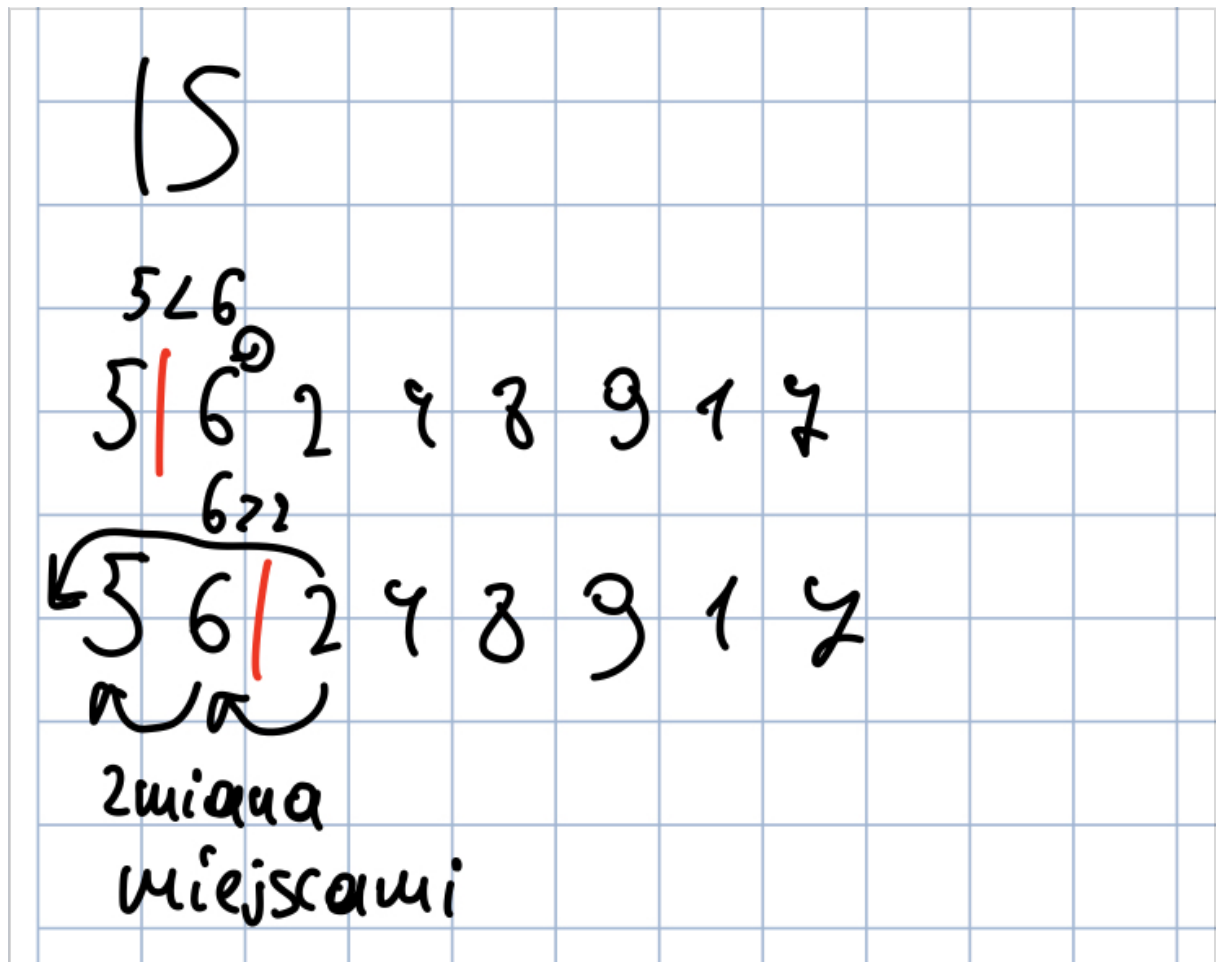 IS
5<6
5|6 2 4 8 9 1 7
6>2
5 6|2 4 8 9 1 7
zmiana
miejscami